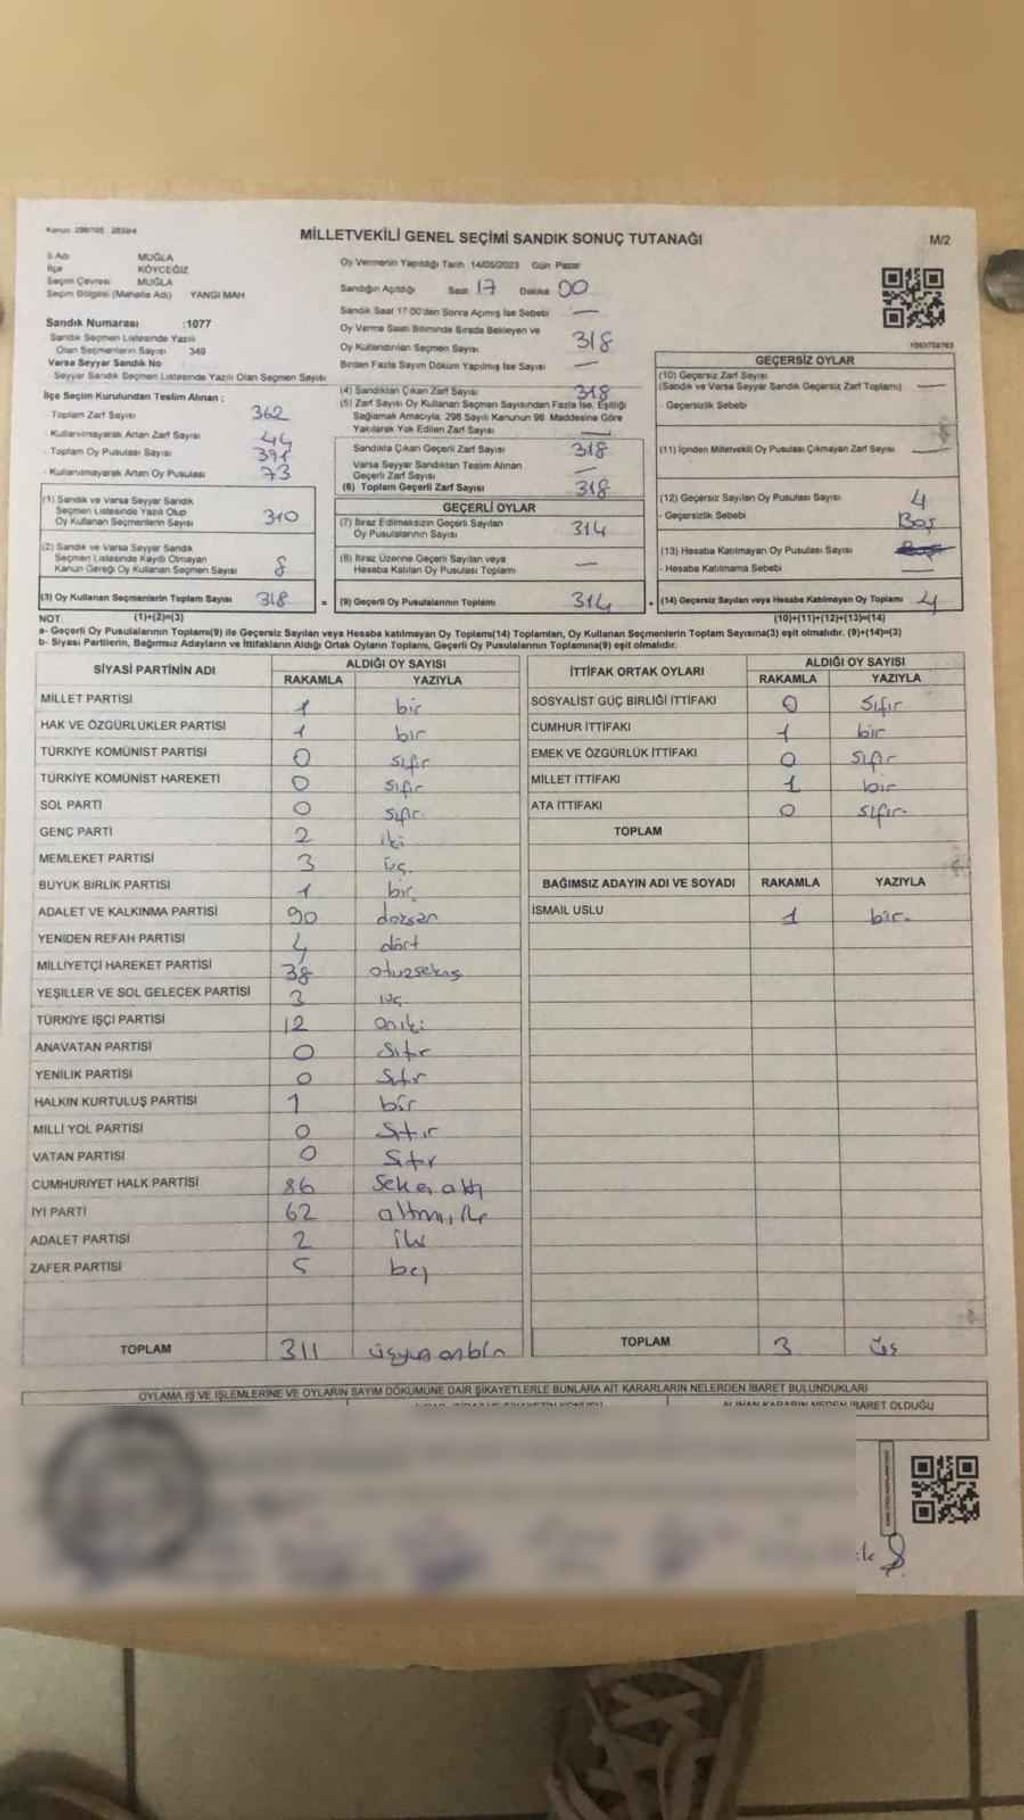 MİLLETVEKİLİ GENEL SEÇİMİ SANDIK SONUÇ TUTANAĞI
M/2
İl Adı MUĞLA
İlçe KÖYCEĞİZ
Seçim Çevresi MUĞLA
Seçim Bölgesi (Mahalle Adı) YANGI MAH
Oy Vermenin Yapıldığı Tarih 14/05/2023 Gün Pazar
Sandığın Açıldığı Saat 17 Dakika 00
Sandık Saat 17:00'dan Sonra Açılmış İse Sebebi —
Sandık Numarası :1077
Sandık Seçmen Listesinde Yazılı
Olan Seçmenlerin Sayısı 349
Varsa Seyyar Sandık No
Seyyar Sandık Seçmen Listesinde Yazılı Olan Seçmen Sayısı
Oy Verme Saati Bitiminde Sırada Bekleyen ve
Oy Kullandırılan Seçmen Sayısı 318
Birden Fazla Sayım Döküm Yapılmış İse Sayısı —
İlçe Seçim Kurulundan Teslim Alınan :
- Toplam Zarf Sayısı 362
- Kullanılmayarak Artan Zarf Sayısı 44
- Toplam Oy Pusulası Sayısı 391
- Kullanılmayarak Artan Oy Pusulası 73
(1) Sandık ve Varsa Seyyar Sandık
Seçmen Listesinde Yazılı Olup
Oy Kullanan Seçmenlerin Sayısı 310
(2) Sandık ve Varsa Seyyar Sandık
Seçmen Listesinde Kayıtlı Olmayan
Kanun Gereği Oy Kullanan Seçmen Sayısı 8
(3) Oy Kullanan Seçmenlerin Toplam Sayısı 318
(4) Sandıktan Çıkan Zarf Sayısı 318
(5) Zarf Sayısı Oy Kullanan Seçmen Sayısından Fazla İse, Eşitliği
Sağlamak Amacıyla, 298 Sayılı Kanunun 98. Maddesine Göre
Yakılarak Yok Edilen Zarf Sayısı —
Sandıkta Çıkan Geçerli Zarf Sayısı 318
Varsa Seyyar Sandıktan Teslim Alınan
Geçerli Zarf Sayısı —
(6) Toplam Geçerli Zarf Sayısı 318
GEÇERLİ OYLAR
(7) İtiraz Edilmeksizin Geçerli Sayılan
Oy Pusulalarının Sayısı 314
(8) İtiraz Üzerine Geçerli Sayılan veya
Hesaba Katılan Oy Pusulası Toplamı —
= (9) Geçerli Oy Pusulalarının Toplamı 314
GEÇERSİZ OYLAR
(10) Geçersiz Zarf Sayısı
(Sandık ve Varsa Seyyar Sandık Geçersiz Zarf Toplamı) —
- Geçersizlik Sebebi
(11) İçinden Milletvekili Oy Pusulası Çıkmayan Zarf Sayısı —
(12) Geçersiz Sayılan Oy Pusulası Sayısı 4
- Geçersizlik Sebebi Boş
(13) Hesaba Katılmayan Oy Pusulası Sayısı
- Hesaba Katılmama Sebebi —
(14) Geçersiz Sayılan veya Hesaba Katılmayan Oy Toplamı 4
NOT (1)+(2)=(3) (10)+(11)+(12)+(13)=(14)
a- Geçerli Oy Pusulalarının Toplamı(9) ile Geçersiz Sayılan veya Hesaba katılmayan Oy Toplamı(14) Toplamları, Oy Kullanan Seçmenlerin Toplam Sayısına(3) eşit olmalıdır. (9)+(14)=(3)
b- Siyasi Partilerin, Bağımsız Adayların ve İttifakların Aldığı Ortak Oyların Toplamı, Geçerli Oy Pusulalarının Toplamına(9) eşit olmalıdır.
SİYASİ PARTİNİN ADI ALDIĞI OY SAYISI
RAKAMLA YAZIYLA
MİLLET PARTİSİ 1 bir
HAK VE ÖZGÜRLÜKLER PARTİSİ 1 bir
TÜRKİYE KOMÜNİST PARTİSİ 0 sıfır
TÜRKİYE KOMÜNİST HAREKETİ 0 sıfır
SOL PARTİ 0 sıfır
GENÇ PARTİ 2 iki
MEMLEKET PARTİSİ 3 üç
BÜYÜK BİRLİK PARTİSİ 1 bir
ADALET VE KALKINMA PARTİSİ 90 doksan
YENİDEN REFAH PARTİSİ 4 dört
MİLLİYETÇİ HAREKET PARTİSİ 38 otuzsekiz
YEŞİLLER VE SOL GELECEK PARTİSİ 3 üç
TÜRKİYE İŞÇİ PARTİSİ 12 oniki
ANAVATAN PARTİSİ 0 Sıfır
YENİLİK PARTİSİ 0 Sıfır
HALKIN KURTULUŞ PARTİSİ 1 bir
MİLLİ YOL PARTİSİ 0 Sıfır
VATAN PARTİSİ 0 Sıfır
CUMHURİYET HALK PARTİSİ 86 Seksenaltı
İYİ PARTİ 62 altmışiki
ADALET PARTİSİ 2 iki
ZAFER PARTİSİ 5 beş
TOPLAM 311 üçyüz onbir
İTTİFAK ORTAK OYLARI ALDIĞI OY SAYISI
RAKAMLA YAZIYLA
SOSYALİST GÜÇ BİRLİĞİ İTTİFAKI 0 Sıfır
CUMHUR İTTİFAKI 1 bir
EMEK VE ÖZGÜRLÜK İTTİFAKI 0 sıfır
MİLLET İTTİFAKI 1 bir
ATA İTTİFAKI 0 sıfır
TOPLAM
BAĞIMSIZ ADAYIN ADI VE SOYADI RAKAMLA YAZIYLA
İSMAİL USLU 1 bir
TOPLAM 3 üç
OYLAMA İŞ VE İŞLEMLERİNE VE OYLARIN SAYIM DÖKÜMÜNE DAİR ŞİKAYETLERLE BUNLARA AİT KARARLARIN NELERDEN İBARET BULUNDUKLARI
ALINAN KARARIN NEDEN İBARET OLDUĞU